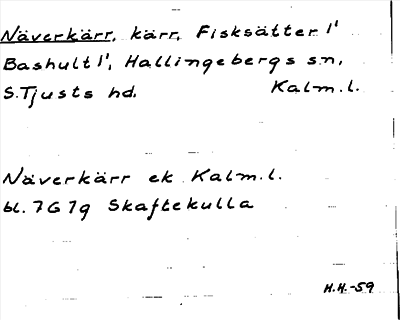 Näverkärr, kärr, Fisksätter 1'
Bashult 1', Hallingebergs sn,
S. Tjusts hd. Kalm. l.
Näverkärr ek Kalm. l.
bl. 7G 7g Skaftekulla
H.H.-59